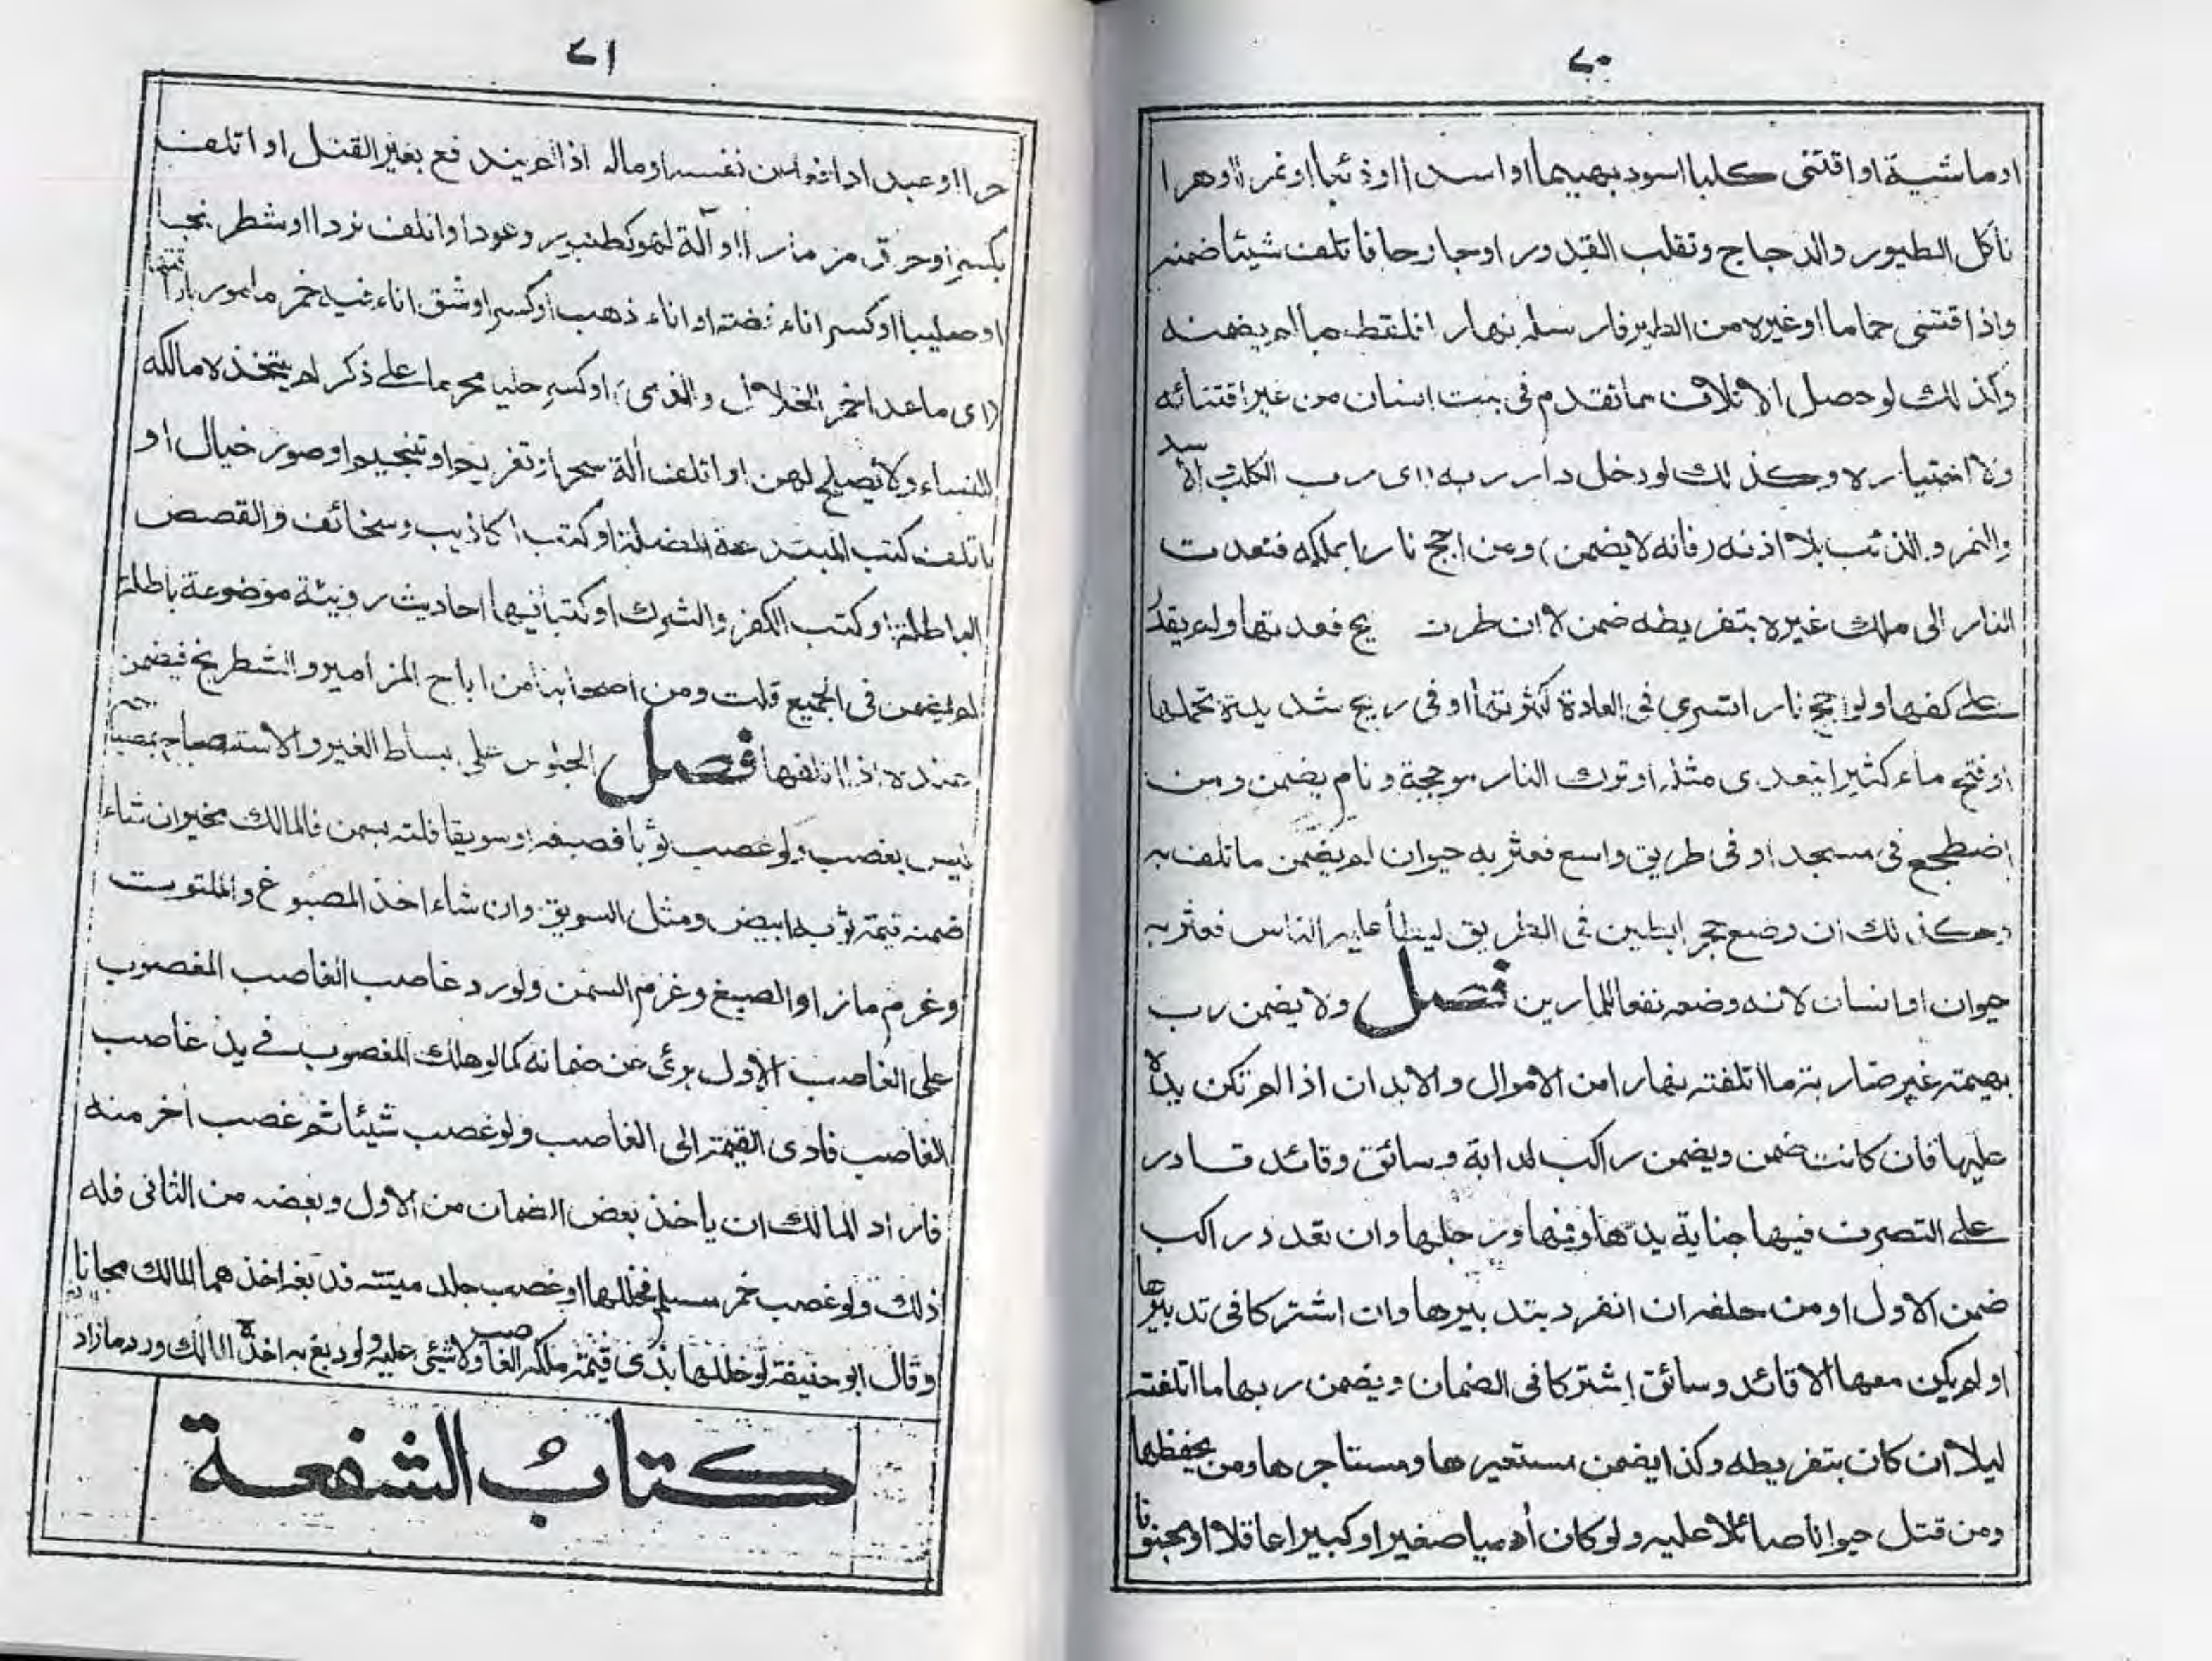 ٧٠
او ماشية او اقتنى كلبا اسود بهيما او اسدا او ذئبا او نمرا او هرا
تأكل الطيور والدجاج وتقلب القدور او جارحا فاتلف شيئا ضمنه
واذا اقتنى حماما او غيره من الطير فارسله نهارا فلقط حبا لم يضمنه
وكذلك لو حصل الاتلاف مما تقدم في بيت انسان من غير اقتنائه
ولا اختياره وكذلك لو دخل دار ربه (اى رب الكلب الاسد
والنمر والذئب بلا اذنه (فانه لا يضمن) ومن اجج نارا بملكه فتعدت
النار الى ملك غيره بتفريطه ضمن لا ان طرت يح فعدتها ولم يقدر
على كفها ولو اجج نارا تسري في العادة لكثرتها او في ريح شديدة تحملها
او فتح ماء كثيرا يتعدى مثله او ترك النار موججة ونام يضمن ومن
اضطجع في مسجد او في طريق واسع فعثر به حيوان لم يضمن ما تلف به
وكذلك ان وضع حجرا بطين في الطريق ليطأ عليه الناس فعثر به
حيوان او انسان لانه وضعه نفعا للمارين فصل ولا يضمن رب
بهيمته غير ضاربة ما اتلفته نهارا من الاموال والابدان اذا لم تكن يده
عليها فان كانت ضمن ويضمن راكب لدابة وسائق وقائد قادر
على التصرف فيها جناية يدها وفيها ورجلها وان تعدد راكب
ضمن الاول او من خلفه ان انفرد بتدبيرها وان اشتركا في تدبيرها
او لم يكن معها الا قائد وسائق اشتركا في الضمان ويضمن ربها ما اتلفته
ليلا ان كان بتفريطه وكذا يضمن مستعيرها ومستاجرها ومن يحفظها
ومن قتل حيوانا صائلا عليه ولو كان أدميا صغيرا او كبيرا عاقلا او مجنونا
٧١
حرا او عبدا دافعا عن نفسه او ماله اذا لم يندفع بغير القتل او اتلف
بكسر او حرق مزمارا او آلة لهو كطنبور وعود او اتلف نردا او شطرنجا
او صليبا او كسر اناء فضة او اناء ذهب او كسر او شق اناء فيه خمر مامور باراقتها
(اى ما عدا خمر الخلال والذمى) او كسر حليا محرما على ذكر لم يتخذه مالكه
للنساء ولا يصلح لهن او اتلف ألة سحر او تعزيم او تنجيم او صور خيال او
باتلف كتب المبتدعة المضلة او كتب اكاذيب وسخائف والقصص
الباطلة او كتب الكفر والشرك او كتبا فيها احاديث رديئة موضوعة باطلة
لم يضمن في الجميع قلت ومن اصحابنا من اباح المزامير والشطرنج فيضمن
عنده اذا اتلفها فصل الجلوس على بساط الغير والاستصباح بمصباحه
ليس بغصب ولو غصب ثوبا فصبغه او سويقا فلته بسمن فالمالك مخير ان شاء
ضمنه قيمة ثوب ابيض ومثل السويق وان شاء اخذ المصبوغ والملتوت
وغرم ما زاد الصبغ وغرم السمن ولو رد غاصب الغاصب المغصوب
على الغاصب الاول برئ عن ضمانه كما لو هلك المغصوب في يد غاصب
الغاصب فادى القيمة الى الغاصب ولو غصب شيئا ثم غصب أخر منه
فاراد المالك ان ياخذ بعض الضمان من الاول وبعضه من الثانى فله
ذلك ولو غصب خمر مسلم فخللها او غصب جلد ميتة فدبغه اخذهما المالك مجانا
وقال ابو حنيفة لو خللها بذى قيمة ملكه الغاصب ولا شئ عليه ولو دبغ به اخذه المالك ورد ما زاد
كتاب الشفعة